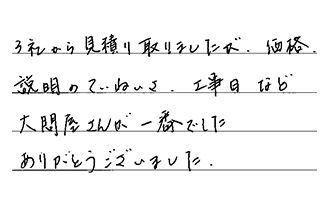 3社から見積り取りましたが、価格、
説明のていねいさ、工事日など
大問屋さんが一番でした
ありがとうございました。